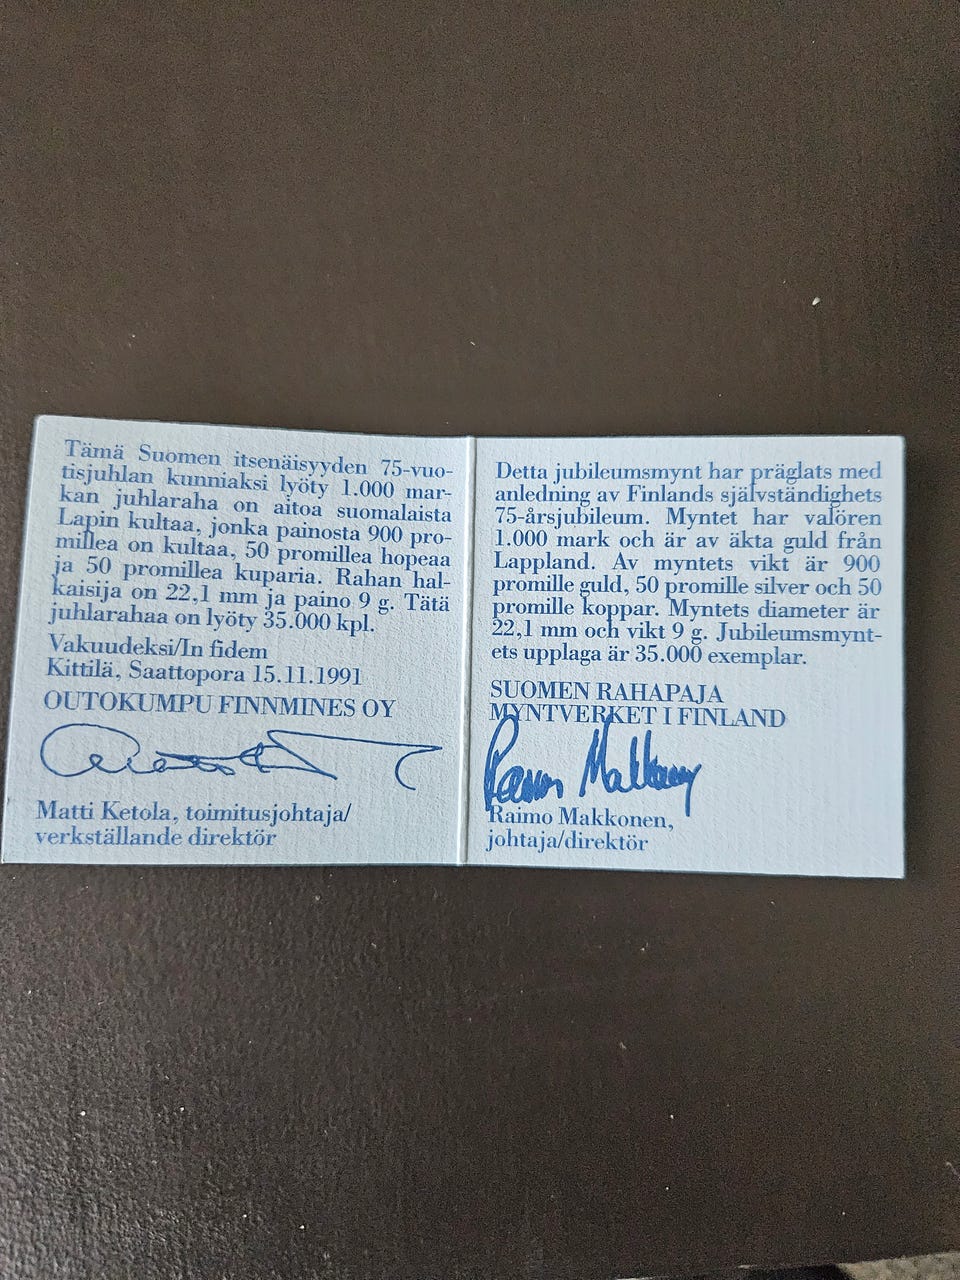 Tämä Suomen itsenäisyyden 75-vuo-
tisjuhlan kunniaksi lyöty 1.000 mar-
kan juhlaraha on aitoa suomalaista
Lapin kultaa, jonka painosta 900 pro-
millea on kultaa, 50 promillea hopeaa
ja 50 promillea kuparia. Rahan hal-
kaisija on 22,1 mm ja paino 9 g. Tätä
juhlarahaa on lyöty 35.000 kpl.
Vakuudeksi/In fidem
Kittilä, Saattopora 15.11.1991
OUTOKUMPU FINNMINES OY
Matti Ketola, toimitusjohtaja/
verkställande direktör
Detta jubileumsmynt har präglats med
anledning av Finlands självständighets
75-årsjubileum. Myntet har valören
1.000 mark och är av äkta guld från
Lappland. Av myntets vikt är 900
promille guld, 50 promille silver och 50
promille koppar. Myntets diameter är
22,1 mm och vikt 9 g. Jubileumsmynt-
ets upplaga är 35.000 exemplar.
SUOMEN RAHAPAJA
MYNTVERKET I FINLAND
Raimo Makkonen
Raimo Makkonen,
johtaja/direktör